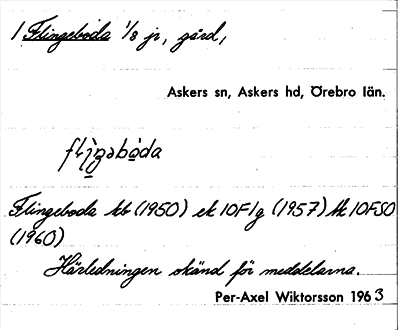 1 Flingeboda 1/8 jr, gård,
Askers sn, Askers hd, Örebro län.
Flingeboda kb (1950) ek 10F1g (1957) tk 10FSO
(1960)
Härledningen okänd för meddelarna.
Per-Axel Wiktorsson 1963